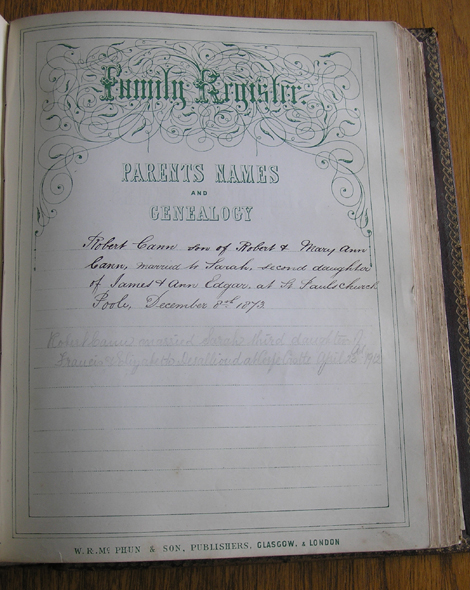 Family Register.
PARENTS NAMES
AND
GENEALOGY
Robert Cann son of Robert & Mary Ann
Cann, married to Sarah, second daughter
of James & Ann Edgar, at St Pauls church
Poole, December 8th 1873.
Robert Cann married Sarah third daughter of
Francis & Elizabeth at Corfe Castle April
W. R. Mc PHUN & SON, PUBLISHERS, GLASGOW, & LONDON